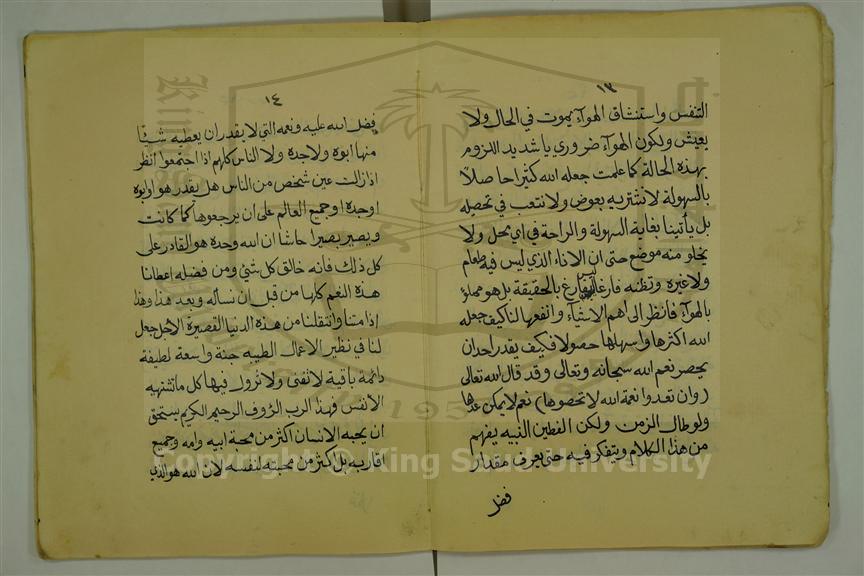 ١٣
التنفس واستنشاق الهوآء يموت في الحال ولا
يعيش ولكون الهوآء ضروريا شديد اللزوم
بهذه الحالة كما علمت جعله الله كثيرا حاصلا
بالسهولة لا نشتريه بعوض ولا نتعب في تحصيله
بل يأتينا بغاية السهولة والراحة في اي محل ولا
يخلو منه موضع حتى ان الاناء الذي ليس فيه طعام
ولا غيره وتظنه فارغا ليس بفارغ بالحقيقة بل هو مملوء
بالهوآء فانظر الى اهم الاشيآء وانفعها لنا كيف جعله
الله اكثرها واسهلها حصولا فكيف يقدر احد ان
يحصر نعم الله سبحانه وتعالى وقد قال الله تعالى
(وان تعدوا نعمة الله لا تحصوها) نعم لا يمكن عدها
ولو طال الزمن ولكن الفطين النبيه يفهم
من هذا الكلام ويتفكر فيه حتى يعرف مقدار
فضل
١٤
فضل الله عليه ونعمه التي لا يقدر ان يعطيه شيئا
منها ابوه ولا جده ولا الناس كلهم اذا اجتمعوا انظر
اذا زالت عين شخص من الناس هل يقدر هو او ابوه
او جده او جميع العالم على ان يرجعوها كما كانت
ويصير بصيرا حاشا ان الله وحده هو القادر على
كل ذلك فانه خالق كل شئ ومن فضله اعطانا
هذه النعم كلها من قبل ان نسأله وبعد هذا وهذا
اذا متنا وانتقلنا من هذه الدنيا القصيرة الاجل جعل
لنا في نظير الاعمال الطيبه جنة واسعة لطيفة
دائمة باقية لا تفنى ولا تزول فيها كل ما تشتهيه
الانفس فهذا الرب الرؤف الرحيم الكريم يستحق
ان يحبه الانسان اكثر من محبة ابيه وامه وجميع
اقاربه بل اكثر من محبته لنفسه لان الله هو الذي
Copyright © King Saud University
1957